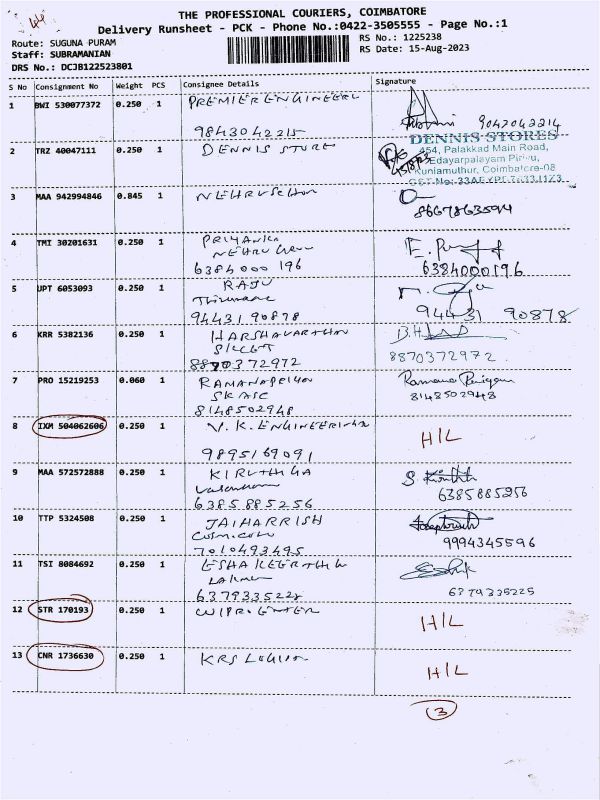 44
THE PROFESSIONAL COURIERS, COIMBATORE
Delivery Runsheet - PCK - Phone No.:0422-3505555 - Page No.:1
Route: SUGUNA PURAM
RS No.: 1225238
Staff: SUBRAMANIAN
RS Date: 15-Aug-2023
DRS No.: DCJB122523801
S No Consignment No Weight PCS Consignee Details Signature
1 BWI 530077372 0.250 1 PREMIER ENGINEERI
9843042215 9042042214
2 TRZ 40047111 0.250 1 DENNIS STORE
DENNIS STORES
454, Palakkad Main Road,
Edayarpalayam Pirivu,
Kuniamuthur, Coimbatore-08
3 MAA 942994846 0.845 1
8667863594
4 TMI 30201631 0.250 1 PRIYANKA
NEHRU
6384000196 6384000196
5 UPT 6053093 0.250 1 RAJU
94431 90878 94431 90878
6 KRR 5382136 0.250 1 HARSHAVARDHAN
8870372972 8870372972
7 PRO 15219253 0.060 1 RAMANAPRIYAN
SKASC
8148502948 8148502948
8 IXM 504062606 0.250 1 V. K. ENGINEERING
9895169091 H/L
9 MAA 572572888 0.250 1 KIRUTHIGA
6385885256 6385885256
10 TTP 5324508 0.250 1 JAI HARRISH
7010493495 9994345596
11 TSI 8084692 0.250 1 ESHA KEERTHIK
6379335225 6379335225
12 STR 170193 0.250 1 WIPRO ENTER
H/L
13 CNR 1736630 0.250 1 KRS
H/L
3